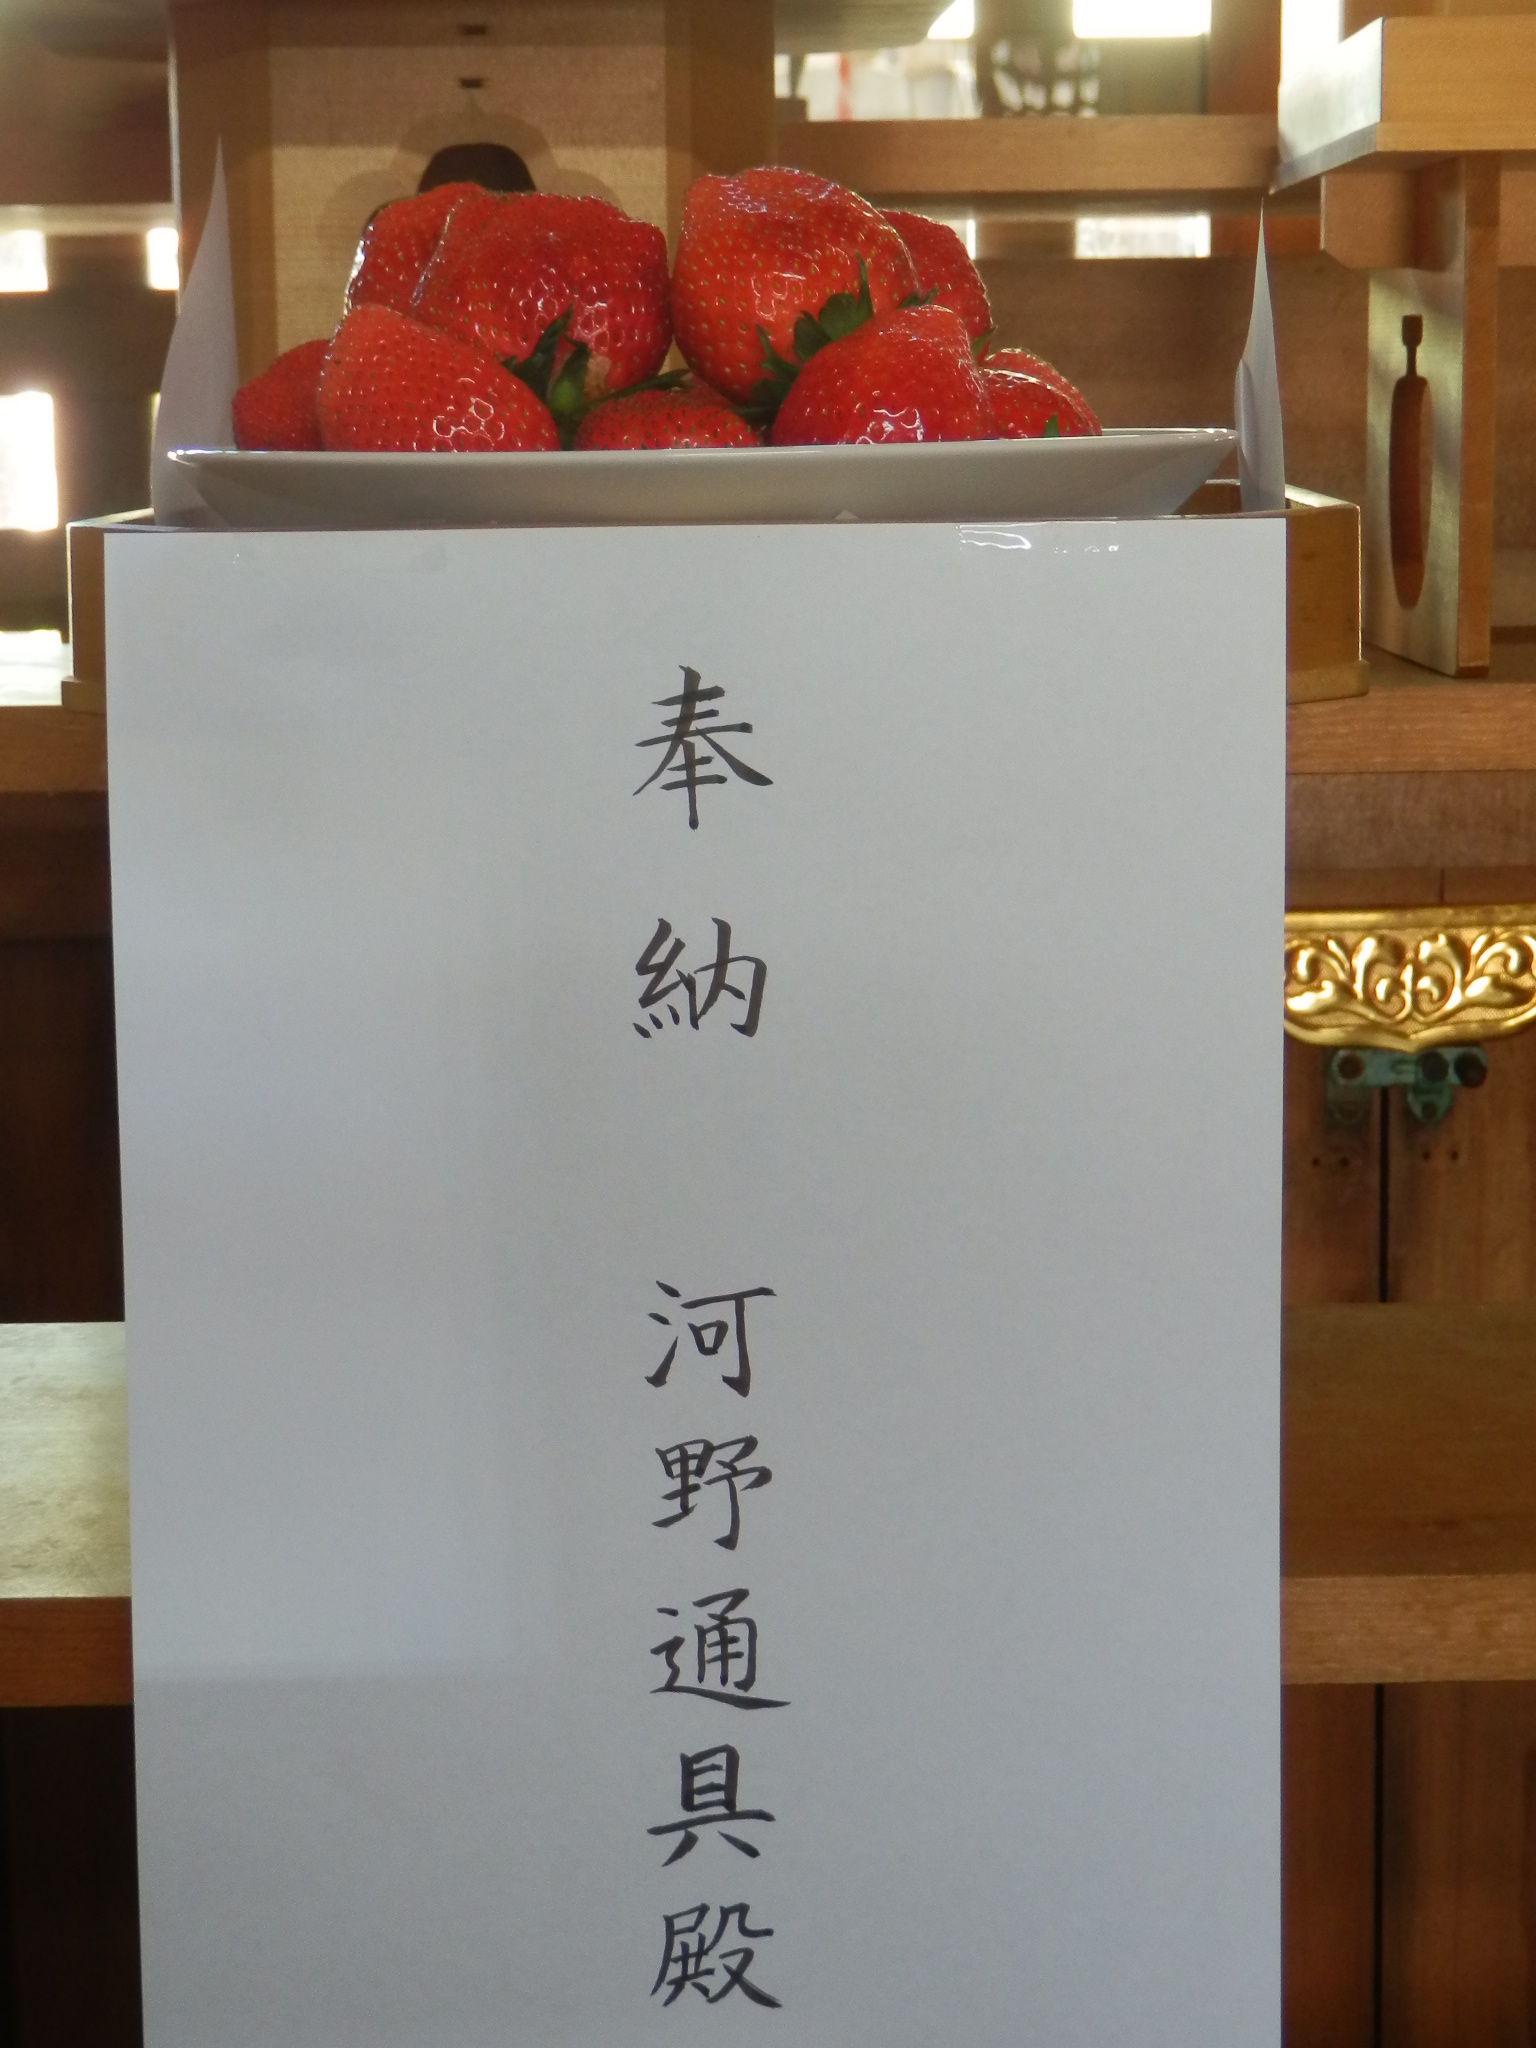 奉納 河野通具殿